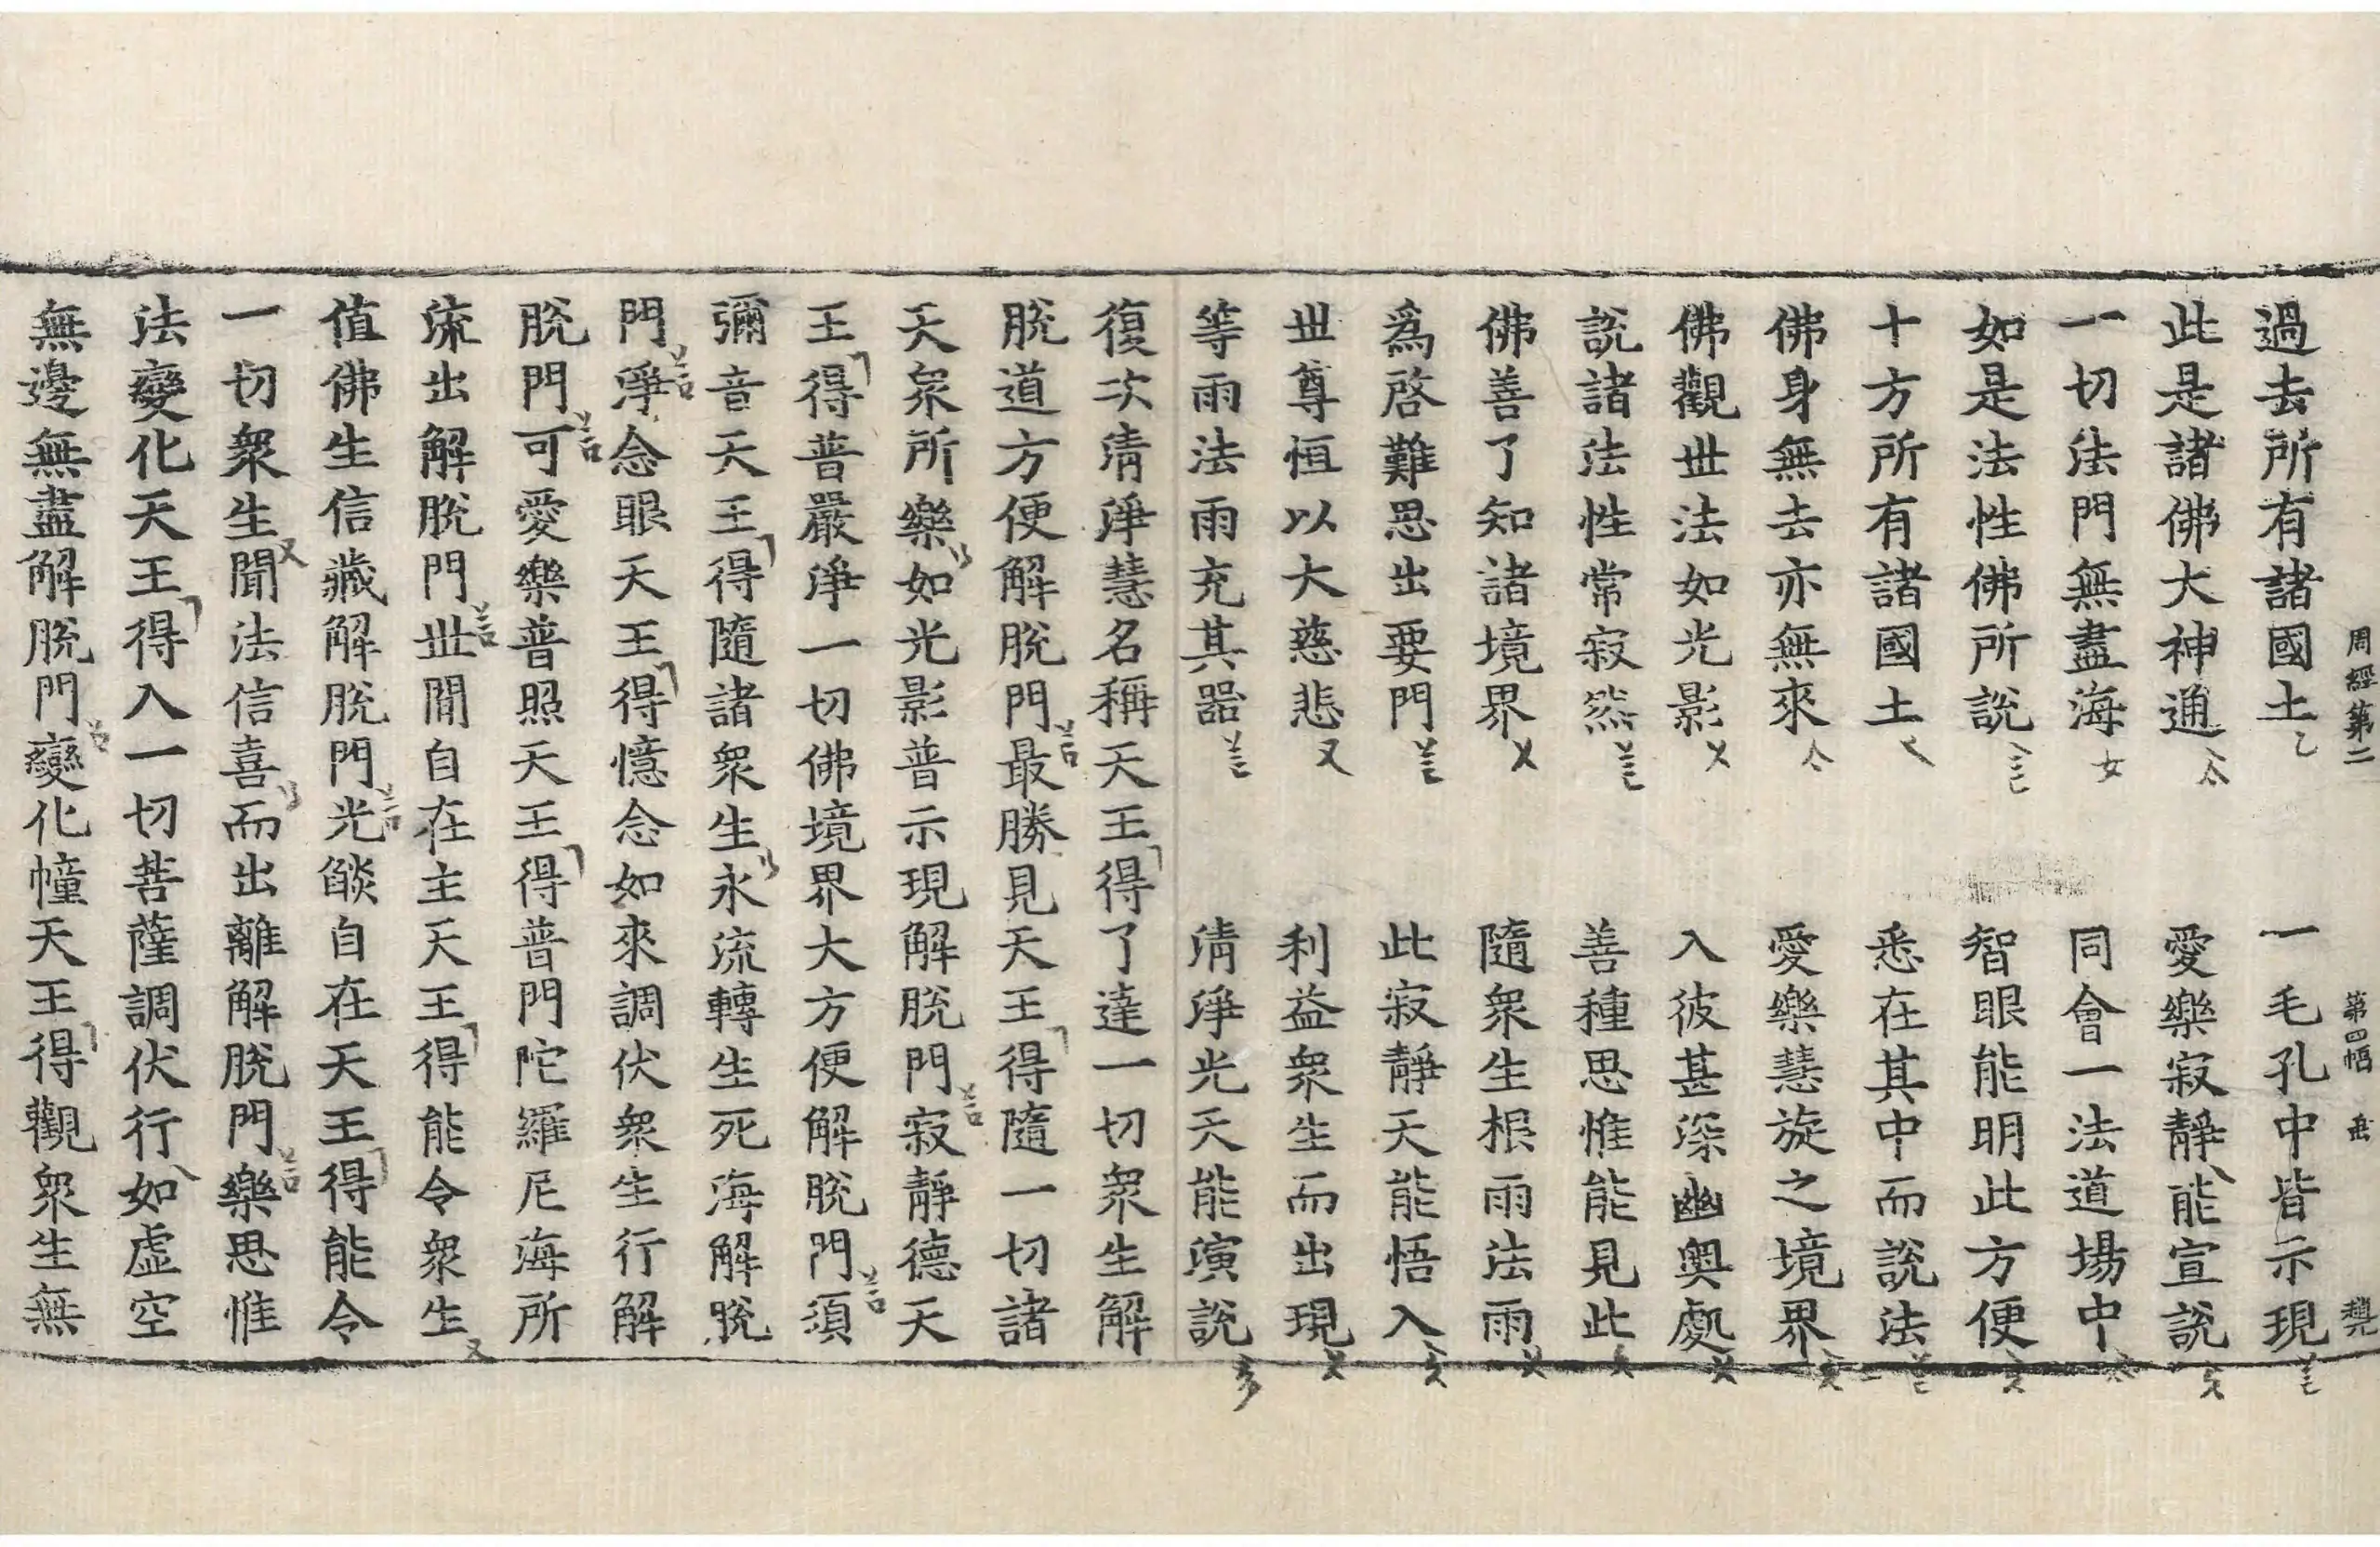 周經第二 第四幅
過去所有諸國土 一毛孔中皆示現
此是諸佛大神通 愛樂寂靜能宣說
一切法門無盡海 同會一法道場中
如是法性佛所說 智眼能明此方便
十方所有諸國土 悉在其中而說法
佛身無去亦無來 愛樂慧旋之境界
佛觀世法如光影 入彼甚深幽奧處
說諸法性常寂然 善種思惟能見此
佛善了知諸境界 隨衆生根雨法雨
爲啓難思出要門 此寂靜天能悟入
世尊恒以大慈悲 利益衆生而出現
等雨法雨充其器 淸淨光天能演說
復次淸淨慧名稱天王得了達一切衆生解
脫道方便解脫門最勝見天王得隨一切諸
天衆所樂如光影普示現解脫門寂靜德天
王得普嚴淨一切佛境界大方便解脫門須
彌音天王得隨諸衆生永流轉生死海解脫
門淨念眼天王得憶念如來調伏衆生行解
脫門可愛樂普照天王得普門陀羅尼海所
流出解脫門世間自在主天王得能令衆生
值佛生信藏解脫門光燄自在天王得能令
一切衆生聞法信喜而出離解脫門樂思惟
法變化天王得入一切菩薩調伏行如虛空
無邊無盡解脫門變化幢天王得觀衆生無